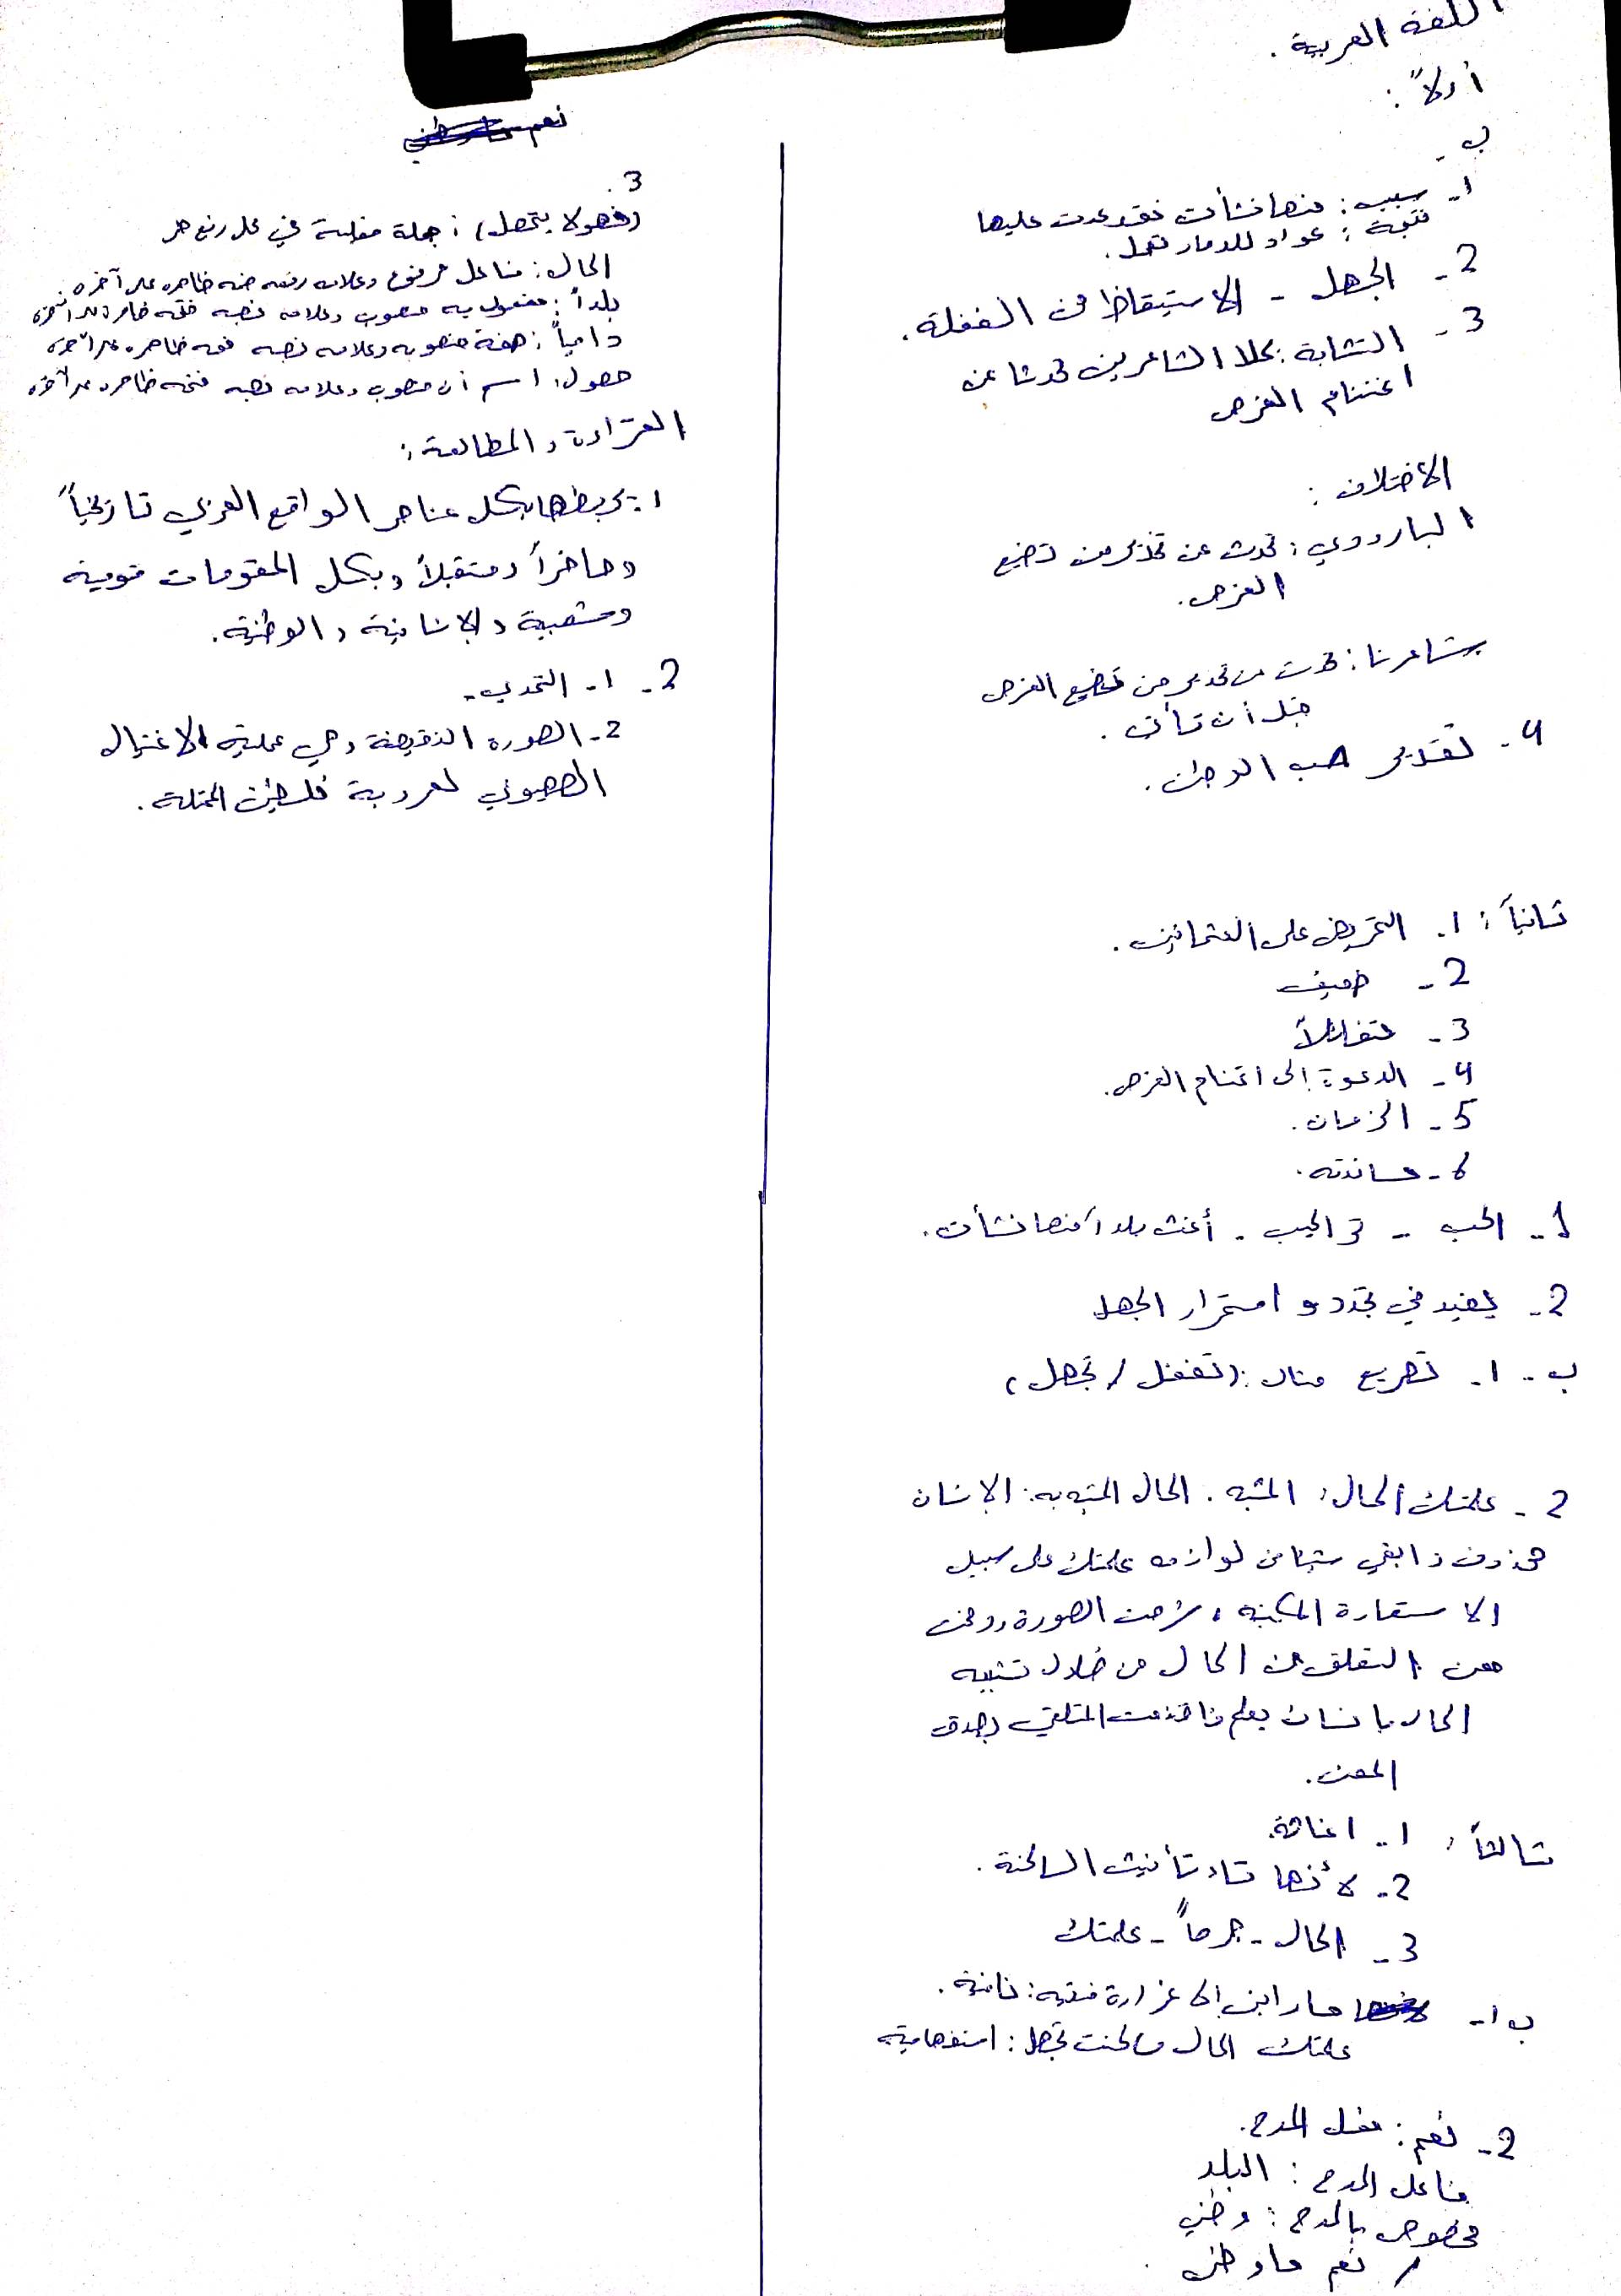 اللغة العربية.
أولاً:
ب -
1- سبب: منها نشأت فقد عدت عليها
نتيجة: عواد للدمار تحمل.
2- الجهل - الاستيقاظ من الغفلة.
3- التشابة: كلا الشاعرين تحدثا عن
اغتنام الفرص
الاختلاف:
البارودي: تحدث عن تحذير من تضيع
الفرص.
شاعرنا: تحدث عن تحذير من تضيع الفرص
قبل أن تأتي.
4- تقدير حب الوطن.
ثانياً: 1- التحريض على العثمانين.
2- ضعيف
3- متفائلاً
4- الدعوة إلى اغتنام الفرص.
5- الزمان.
6- مساندته.
1- الحب - الحب - أغث بلداً منها نشأت.
2- يفيد في تجدد و استمرار الجهل
ب - 1- تصريع مثال: (تغفل / تجهل)
2- علمتك الحال: المشبه. الحال المشبه به: الإنسان
محذوف وابقي شيئا من لوازمه علمتك على سبيل
الاستعارة المكنية، شرحت الصورة ووضحت
معنى التعلق من الحال من خلال تشبيه
الحال بإنسان يعلم المتلقي بصدق
المعنى.
ثالثاً: 1- اغاثة.
2- لأنها تاء تأنيث الساكنة.
3- الحال - جرماً - علمتك
ب 1- ما رابني إلا غرارة فتية: نافية.
علمتك الحال ما كنت تجهل: استفهامية
2- نعم: فعل المدح.
فاعل المدح: البلد
مخصوص بالمدح: وطني
/ نعم ما وطني
نعم ما وطني
3.
(فهو لا يتحصل): جملة فعلية في محل رفع خبر
الحال: فاعل مرفوع وعلامه رفعه ضمه ظاهره على آخره.
بلداً: مفعول به منصوب وعلامه نصبه فتحه ظاهرة على آخره
دامياً: صفة منصوبه وعلامه نصبه فتحه ظاهره على آخره
حصول: اسم أن منصوب وعلامه نصبه فتحه ظاهره على آخره
القراءة والمطالعة:
1- يربطها بكل عناصر الواقع العربي تاريخياً
وحاضراً ومستقبلاً وبكل المقومات قومية
وشعبية والإنسانية والوطنية.
2- 1- التحدي.
2- الصورة النقيضة وهي عملية الاغتيال
الصهيوني لعروبة فلسطين المحتلة.